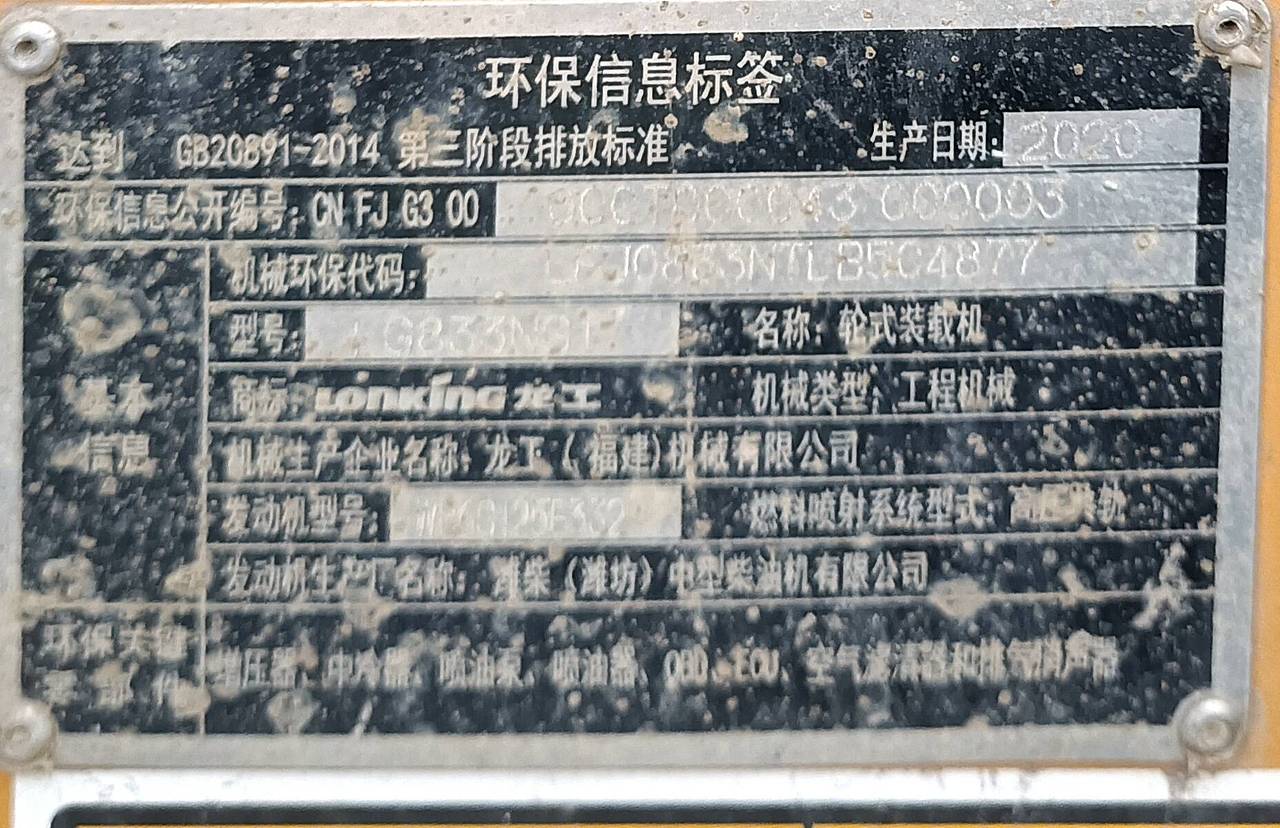 环保信息标签
达到 GB20891-2014 第三阶段排放标准 生产日期: 2020
环保信息公开编号: CN FJ G3 00
机械环保代码:
型号: 名称: 轮式装载机
商标: LONKING 龙工 机械类型: 工程机械
基本
信息
机械生产企业名称: 龙工(福建)机械有限公司
发动机型号: 燃料喷射系统型式: 高压共轨
发动机生产厂名称: 潍柴(潍坊)中型柴油机有限公司
环保关键
零部件
增压器、中冷器、喷油泵、喷油器、OBD、ECU、空气滤清器和排气消声器